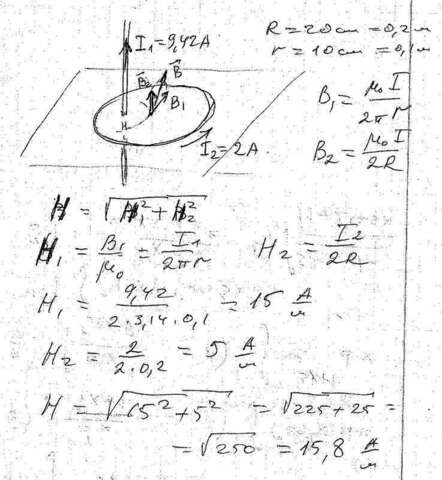 I₁=9,42A
R=20см=0,2м
r=10см=0,1м
B₂ B⃗
B₁
B₁ = μ₀I / 2πr
I₂=2A.
B₂ = μ₀I / 2R
H = √(H₁²+H₂²)
H₁ = B₁/μ₀ = I₁/2πr H₂ = I₂/2R
H₁ = 9,42 / 2·3,14·0,1 = 15 А/м
H₂ = 2 / 2·0,2 = 5 А/м
H = √(15²+5²) = √(225+25) =
= √250 = 15,8 А/м